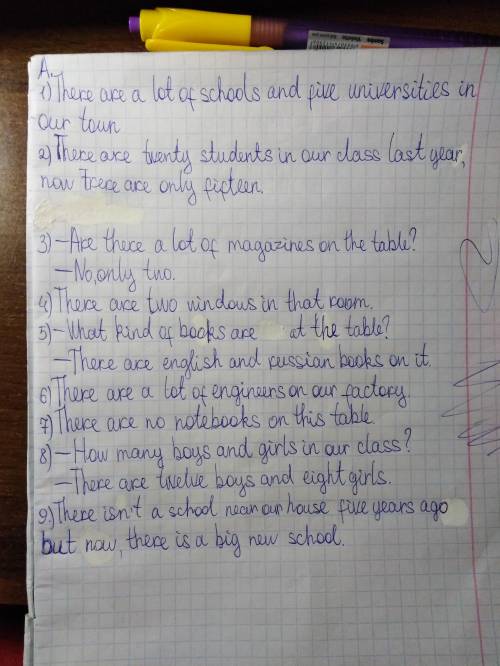 A.
1) There are a lot of schools and five universities in
our town
2) There are twenty students in our class last year,
now there are only fifteen.
3) – Are there a lot of magazines on the table?
– No, only two.
4) There are two windows in that room.
5) – What kind of books are at the table?
– There are english and russian books on it.
6) There are a lot of engineers on our factory.
7) There are no notebooks on this table.
8) – How many boys and girls in our class?
– There are twelve boys and eight girls.
9.) There isn't a school near our house five years ago
but now, there is a big new school.